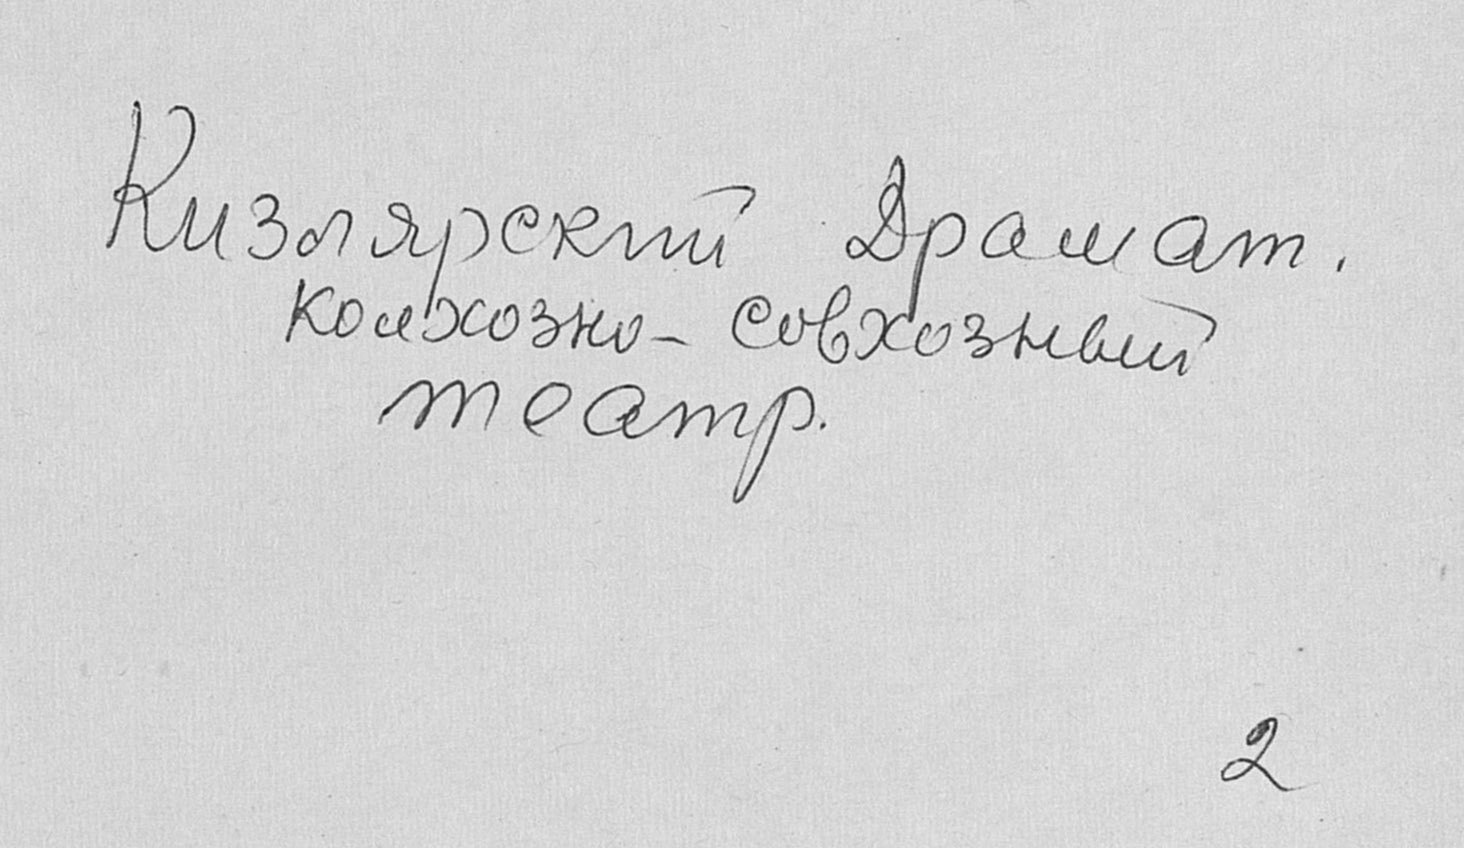 Кизлярский Драмат.
колхозно-совхозный
театр.
2